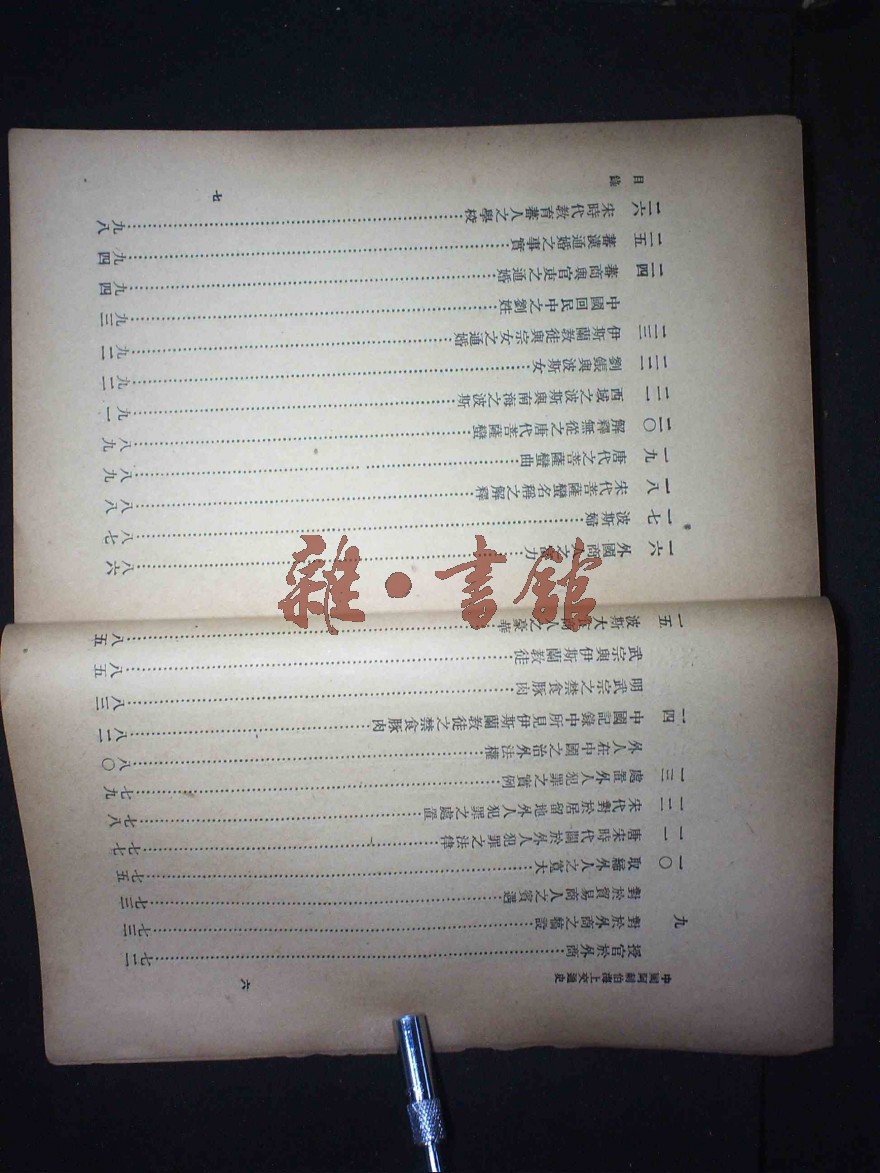 中國阿剌伯海上交通史
六
授官於外商……七二
九 對於外商之犒設……七三
對於貿易商人之賓選……七三
一〇 取締外人之寬大……七五
一一 唐宋時代關於外人犯罪之法律……七七
一二 宋代對於居留地外人犯罪之處置……七八
一三 處置外人犯罪之實例……七九
外人在中國之治外法權……八〇
一四 中國記錄中所見伊斯蘭教徒之禁食豚肉……八二
明武宗之禁食豚肉……八三
武宗與伊斯蘭教徒……八五
一五 波斯大商人之豪華……八五
目錄
一六 外國商人之力……八六
一七 波斯婦……八七
一八 宋代菩薩蠻名稱之解釋……八八
一九 唐代之菩薩蠻曲……八九
二〇 解釋無從之唐代菩薩蠻……八九
二一 西域之波斯與南海之波斯……九一
二二 劉與波斯女……九二
二三 伊斯蘭教徒與宗女之通婚……九二
中國回民中之劉姓……九三
二四 蕃商與官吏之通婚……九四
二五 蕃漢通婚之事實……九四
二六 宋時代教育蕃人之學校……九八
七
雜·書館